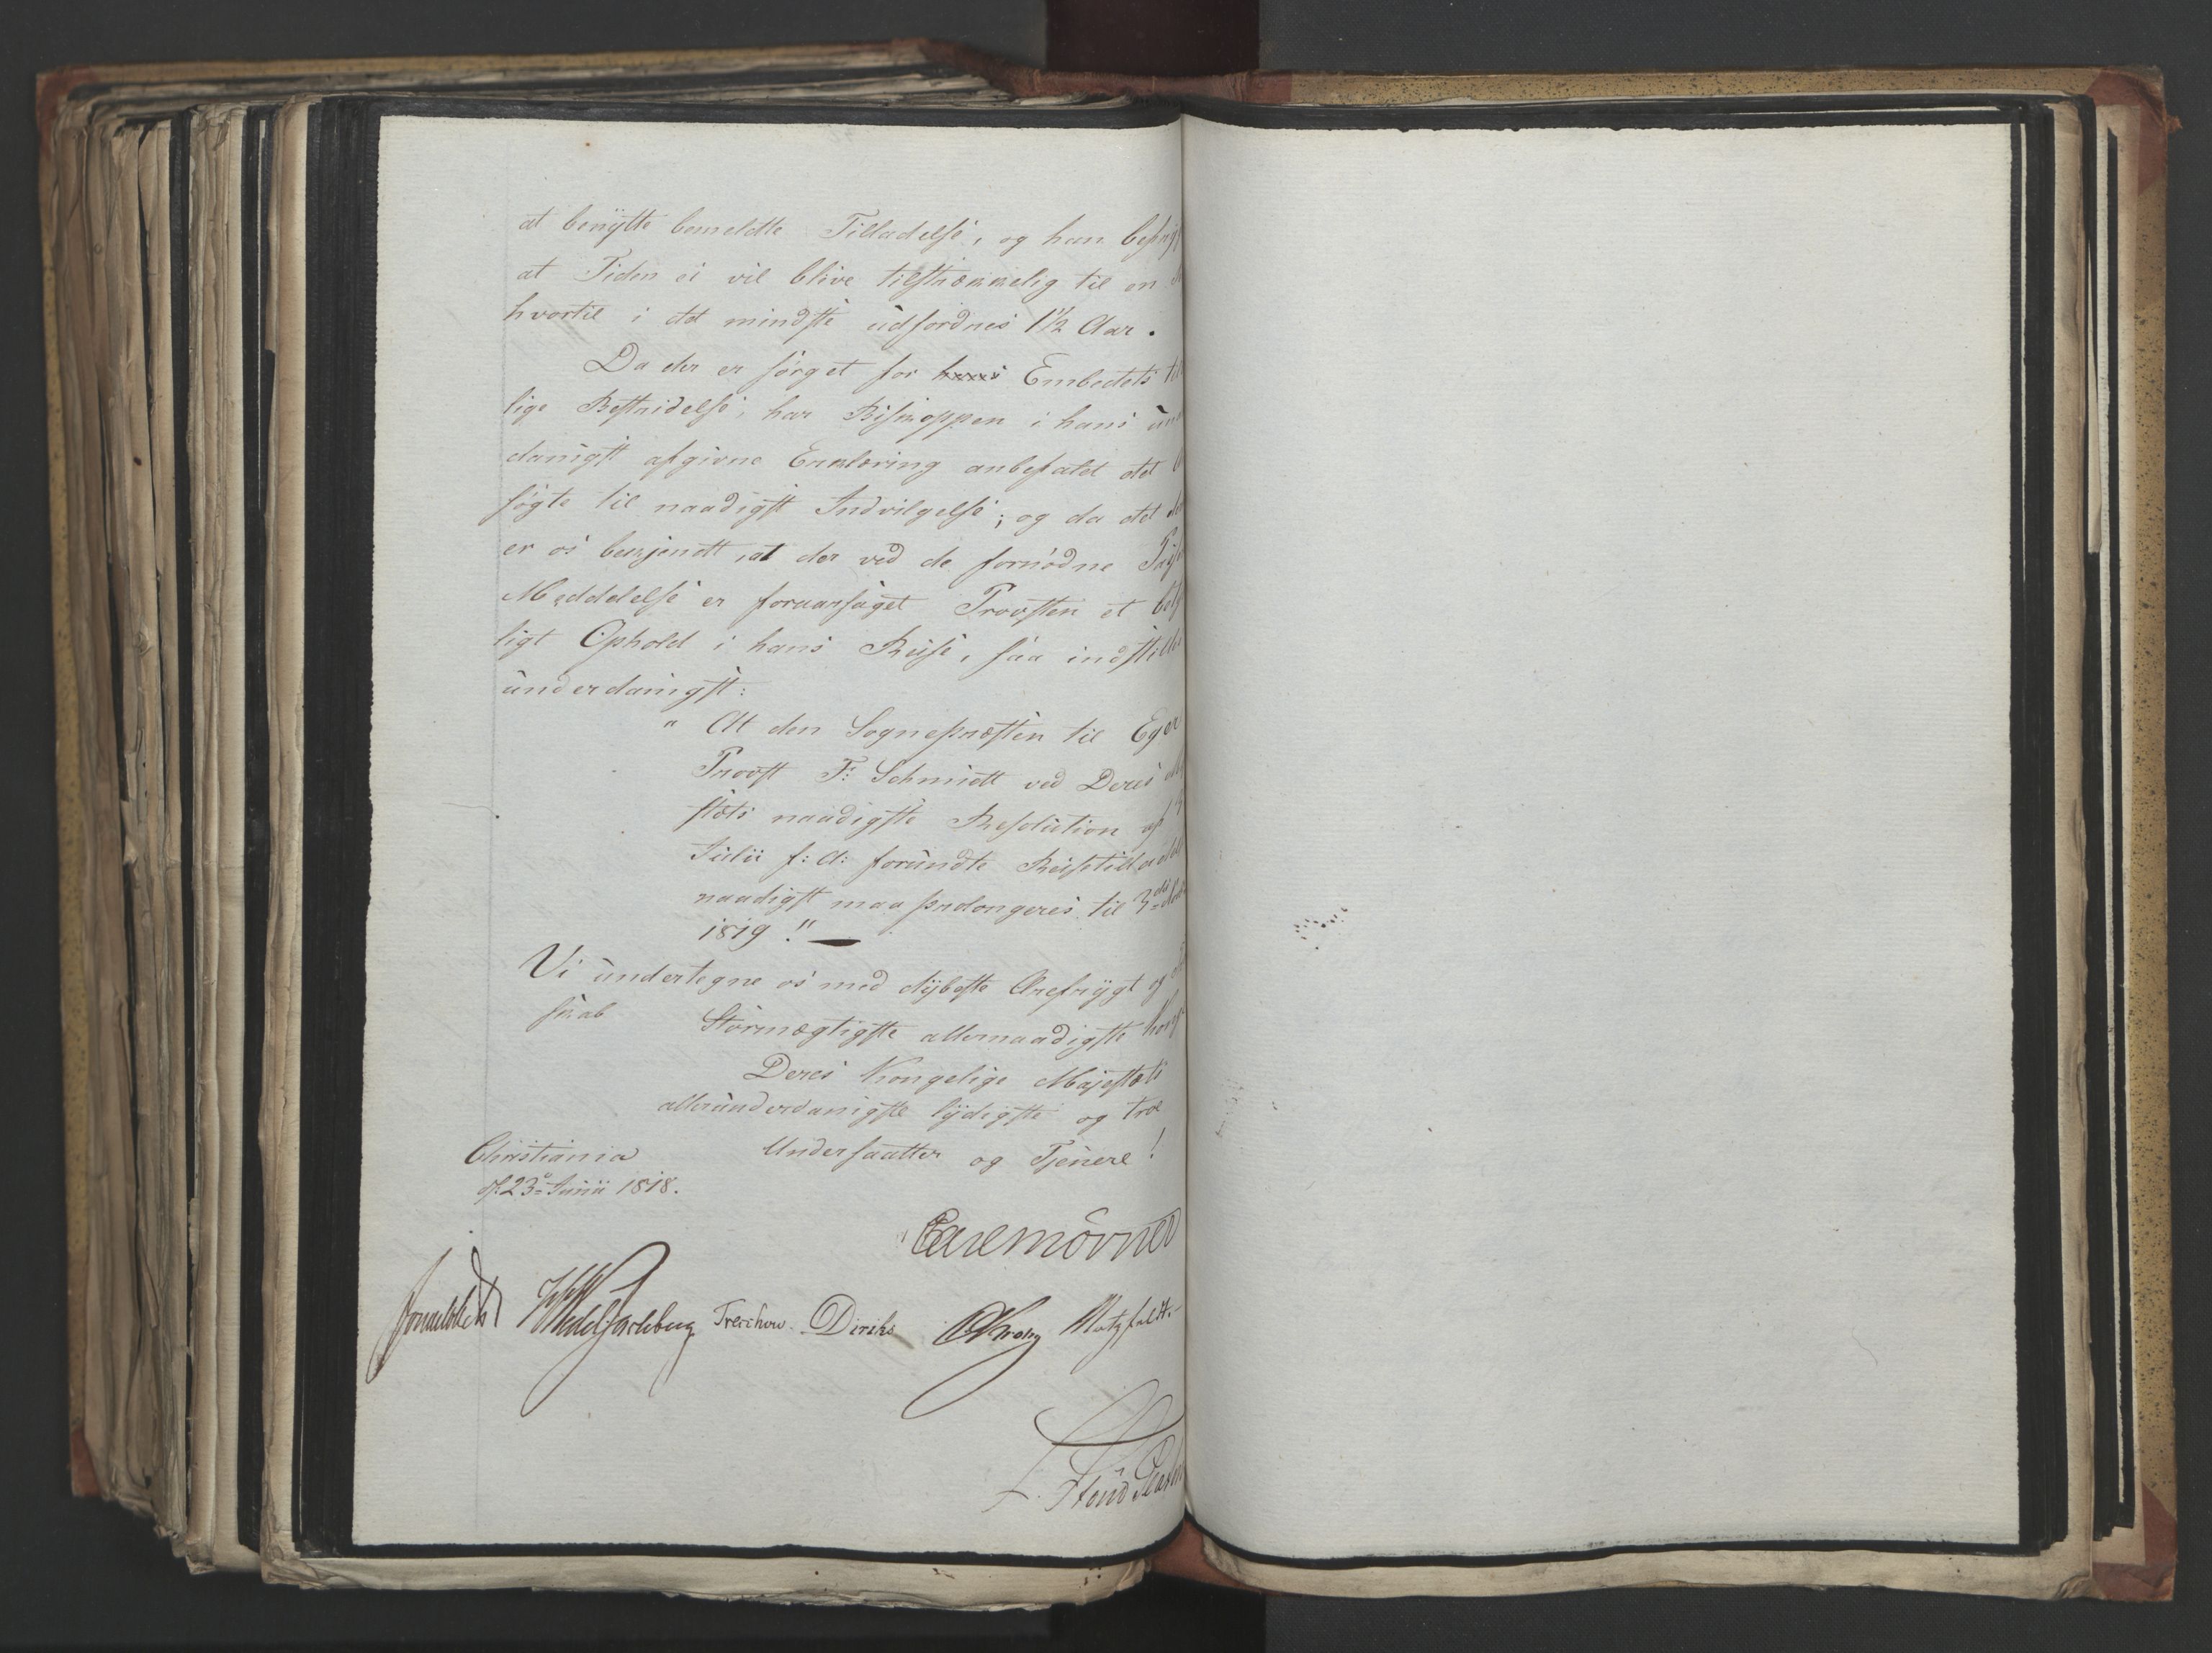 at benÿtte bemeldte Tilladelse, og han
at Tiden ei vil blive tilstrækkelig til en
hvortil i det mindste udfordres 1½ Aar.
Da der er sørget for hans Embedets
lige Bestridelse, har Biskoppen i hans un
danigst afgivne Erklæring anbefalet det
søgte til naadigst Indvilgelse; og da det
er os bekjendt, at der ved de fornødne
Meddelelse er foraarsaget Provsten et
ligt Ophold i hans Reise, saa indstille
underdanigst:
" At den Sognepræsten til Eger
Provst F: Schmidt ved Deres
stæts naadigste Resolution af
Julii f: A: forundte Reisetillad
naadigst maa prolongeres til 3die
1819!"
Vi undertegne os med dÿbeste Ærefrÿgt og
skab
Stormægtigste allernaadigste Konge
Deres Kongelige Majestæts
allerunderdanigste lÿdigste og troe
Undersaatter og Tjenere!
Christiania
d: 23de Junii 1818.
Carl Mörner
Sommerhielm Wedel Jarlsberg Treschow. Diriks CKrohg Motzfeldt.